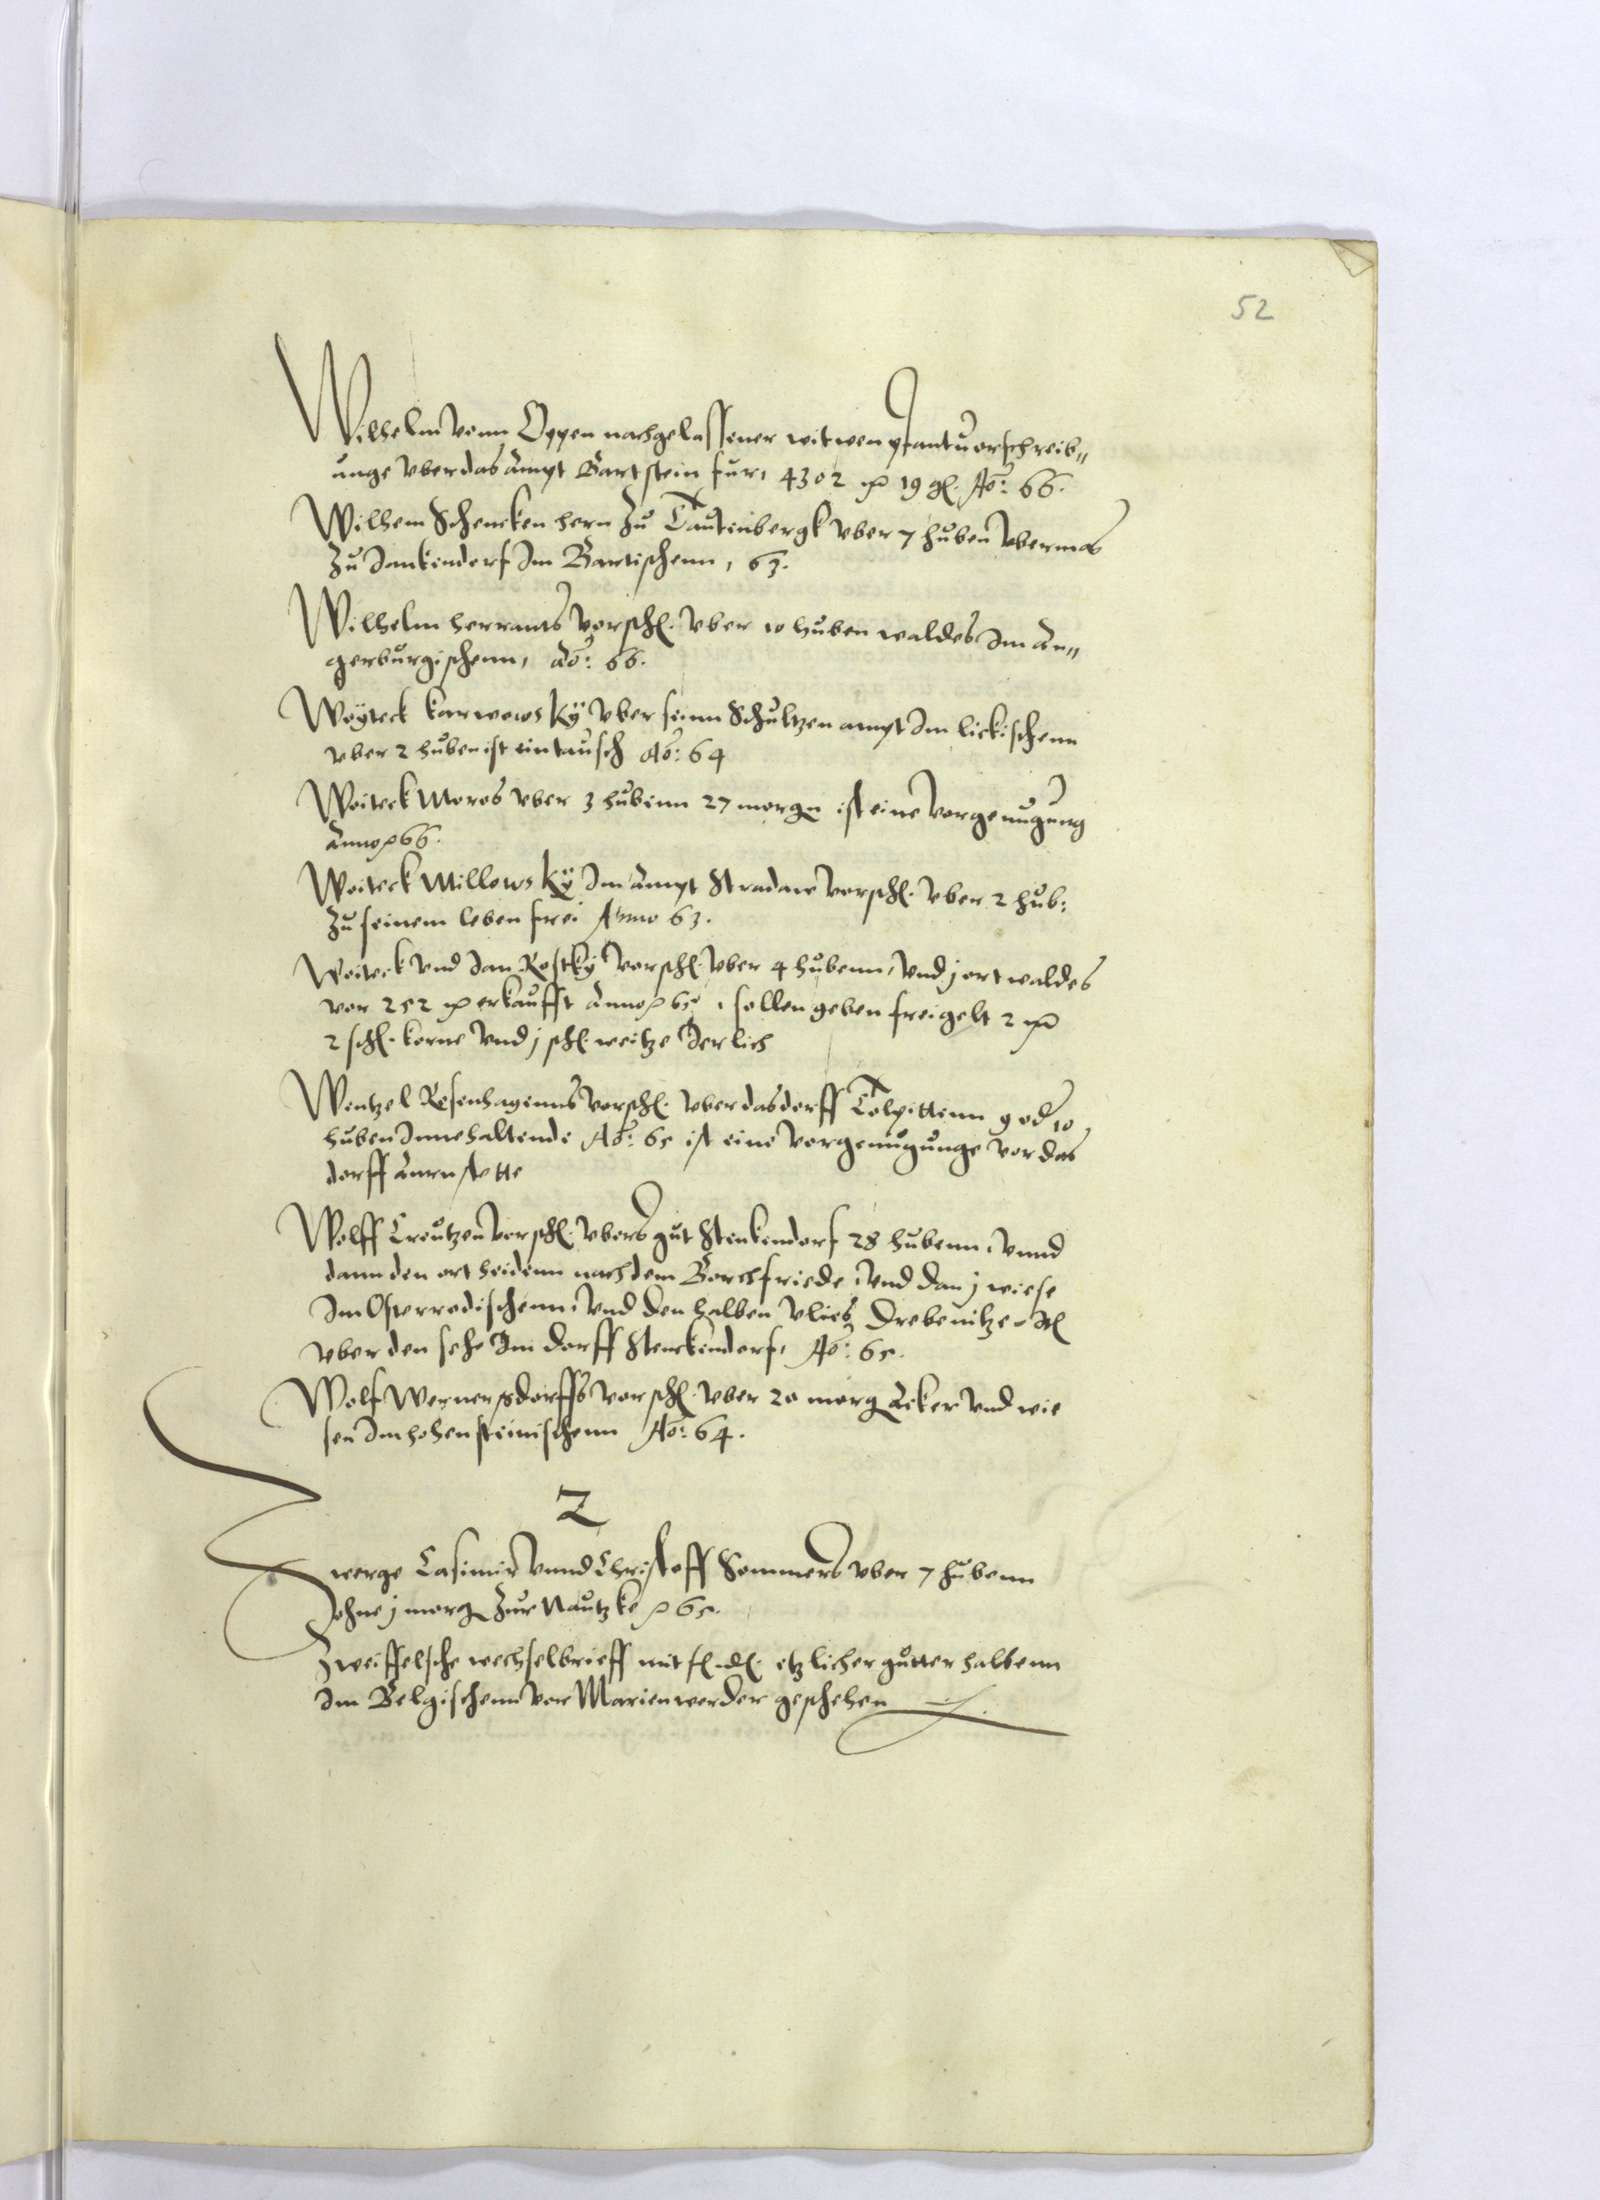 52
Wilhelm vonn Oppen nachgelassener witwen Pfantvorschreib„
unge vber das Ampt Bartstein fur, 4302 mr 19 gl. Ao: 66.
Wilhem Schencken hern zu Tautenbergk vber 7 huben vbermas
zu Jankendorf Im Bartischenn, 63.
Wilhelm herrants vorschl. vber 10 huben waldes Im An„
gerburgischenn, Ao: 66.
Woÿteck Karwowskÿ vber seinn Schultzenampt Im lickischenn
vber 2 huben ist ein tausch Ao: 64
Woiteck Moros vber 3 hubenn 27 morgn ist eine vorgenugung
Anno 66.
Woiteck Millowskÿ Im Ampt Stradaw vorschl. vber 2 hub:
zu seinem leben frei Anno 63.
Woiteck vnd Jan Rostkÿ vorschl. vber 4 hubenn, vnd j ort waldes
vor 252 mr erkaufft Anno 65, sollen geben freigelt 2 mr
2 schl. korne vnd j schl. weitze Jerlich
Wentzel Rosenhagenns vorschl. vber das dorff Tolpittenn 9 od 10
huben Innehaltende Ao: 65 ist eine vorgenugunge vor das
dorff Aurnstette
Wolff Creutzen vorschl. vbers gut Stenkendorf 28 hubenn, vnnd
dann den ort heidenn nach dem Borchfriede, vnd dan j wiese
Im Osterrodischenn, vnd den halben vlies Drebenitze Jtl
vber den sehe Im dorff Stenckendorf, Ao: 65.
Wolf Wernersdorffs vorschl. vber 20 morg Acker vnd wie
sen Im hohensteinischenn Ao: 64.
Z
Zwerge Casimir vnnd Christoff Sommers vber 7 hubenn
ohne j morg zur Nautzke 65.
Zweiffelsche wechselbrieff mit fl. dl. etzlicher gutter halbenn
Im Belgischenn vor Marienwerder geschehen